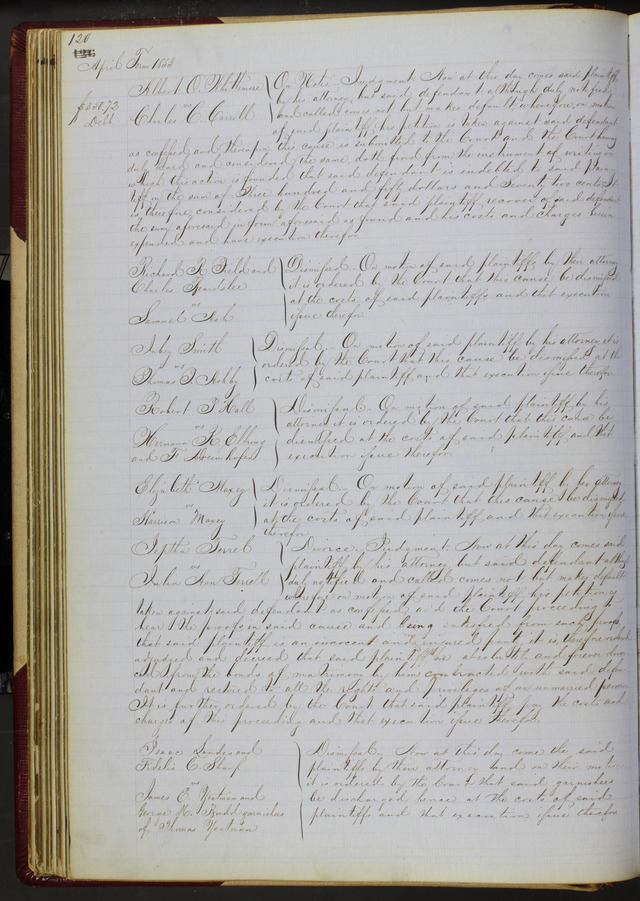 120
126
April Term 1853
Albert O. Whittemore
vs
Charles C. Carroll
$350.72
Debt
On Note. Judgment. Now at this day comes said plaintiff
by his attorney but said defendant although duly notified
and called comes not but makes default wherefore on motion
of said plaintiff his petition is taken against said defendant
as confessed, and thereupon this cause is submitted to the Court and the Court having
duly heard and considered the same doth find from the instrument of writing on
which this action is founded that said defendant is indebted to said plain
tiff in the sum of Three hundred and fifty dollars and Seventy two cents It
is therefore considered by the Court that said plaintiff recover of said defendant
the sum aforesaid in form aforesaid as found and his costs and charges herein
expended and have execution therefor
Richard R. Field and
Charles Beardslee
vs
Samuel
Dismissal. On motion of said plaintiffs by their attorney
it is ordered by the Court that this cause be dismissed
at the costs of said plaintiffs and that execution
issue therefor.
Smith
vs
Thomas
Dismissal. On motion of said plaintiff by his attorney it is
ordered by the Court that this cause be dismissed at the
costs of said plaintiff and that execution issue therefor
Robert P. Hall
vs
Hermann R.
and F.
Dismissal. On motion of said plaintiff by his
attorney it is ordered by the Court that this cause be
dismissed at the costs of said plaintiff and that
execution issue therefor
Elizabeth Maxey
vs
Harrison Maxey
Dismissal. On motion of said plaintiff by her attorney
it is ordered by the Court that this cause be dismissed
at the costs of said plaintiff and that execution issue
therefor
Jeptha Terrell
vs
Julia Ann Terrell
Divorce. Judgment. Now at this day comes said
plaintiff by his attorney but said defendant altho
duly notified and called comes not but makes default
wherefore on motion of said plaintiff his petition is
taken against said defendant as confessed, and the Court proceeding to
hear the proofs in said cause and being satisfied from such proofs
that said plaintiff is an innocent and injured party it is therefore
adjudged and decreed that said plaintiff be absolutely and forever divor
ced from the bonds of matrimony by him contracted with said defen
dant and restored to all the rights and privileges of an unmarried person
It is further ordered by the Court that said plaintiff pay the costs and
charges of this proceeding and that execution issue therefor.
Isaac Landes and
Fidelio C. Sharp
vs
James E. Yeatman and
George K. Budd garnishees
of Yeatman
Dismissal. Now at this day come the said
plaintiffs by their attorney and on their motion
it is ordered by the Court that said garnishees
be discharged hence at the costs of said
plaintiffs and that execution issue therefor